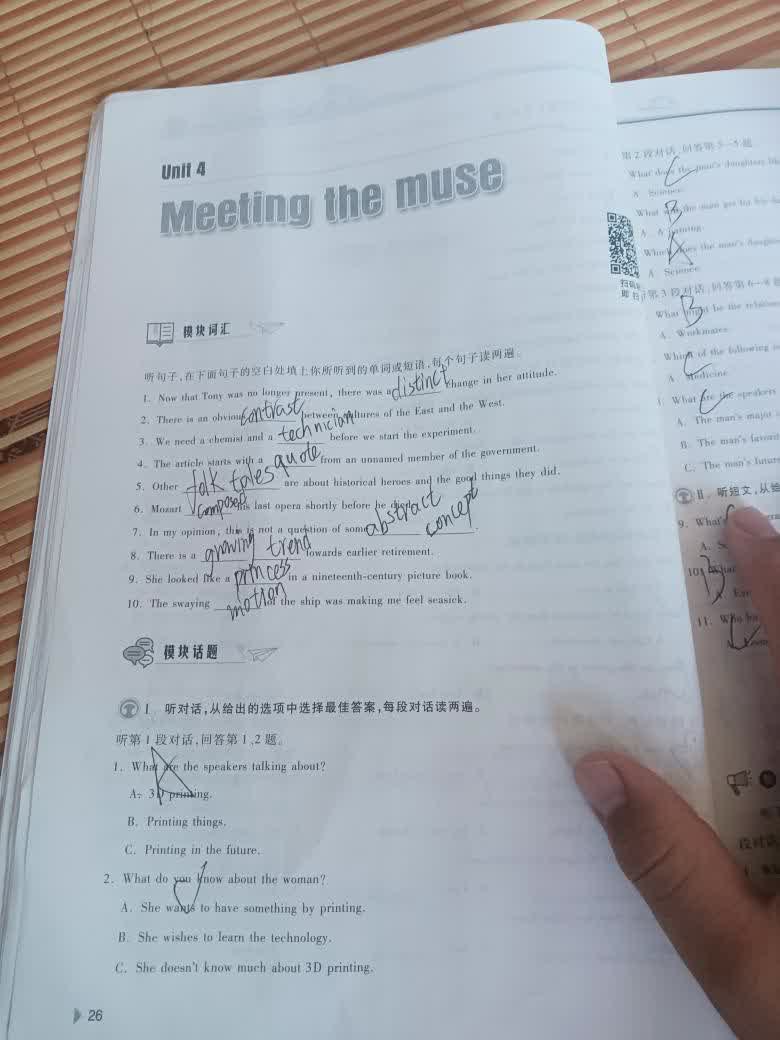 Unit 4
Meeting the muse
模块词汇
听句子,在下面句子的空白处填上你所听到的单词或短语,每个句子读两遍。
1. Now that Tony was no longer present, there was a distinct change in her attitude.
2. There is an obvious contrast between cultures of the East and the West.
3. We need a chemist and a technician before we start the experiment.
4. The article starts with a quote from an unnamed member of the government.
5. Other folk tales are about historical heroes and the good things they did.
6. Mozart composed his last opera shortly before he died.
7. In my opinion, this is not a question of some abstract concept.
8. There is a growing trend towards earlier retirement.
9. She looked like a princess in a nineteenth-century picture book.
10. The swaying motion of the ship was making me feel seasick.
模块话题
Ⅰ. 听对话,从给出的选项中选择最佳答案,每段对话读两遍。
听第1段对话,回答第1、2题。
A
1. What are the speakers talking about?
A. 3D printing.
B. Printing things.
C. Printing in the future.
2. What do you know about the woman?
A. She wants to have something by printing.
B. She wishes to learn the technology.
C. She doesn't know much about 3D printing.
26
第2段对话,回答第3—5题
C
What does the man's daughter
A. Science.
B
What the man get for his
A. A
A
Which does the man's
A. Science
第3段对话,回答第6—8题
B
What might be the
A. Workmates.
C
Which of the following
A. Medicine.
C
What are the speakers
A. The man's major
B. The man's
C. The man's future
Ⅱ. 听短文,从
9. What's
A.
B
10.
A.
11. Who
A.
段对话